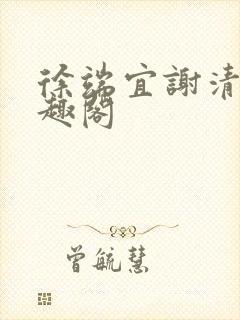 徐端宜謝清
趣閣
曾毓慧